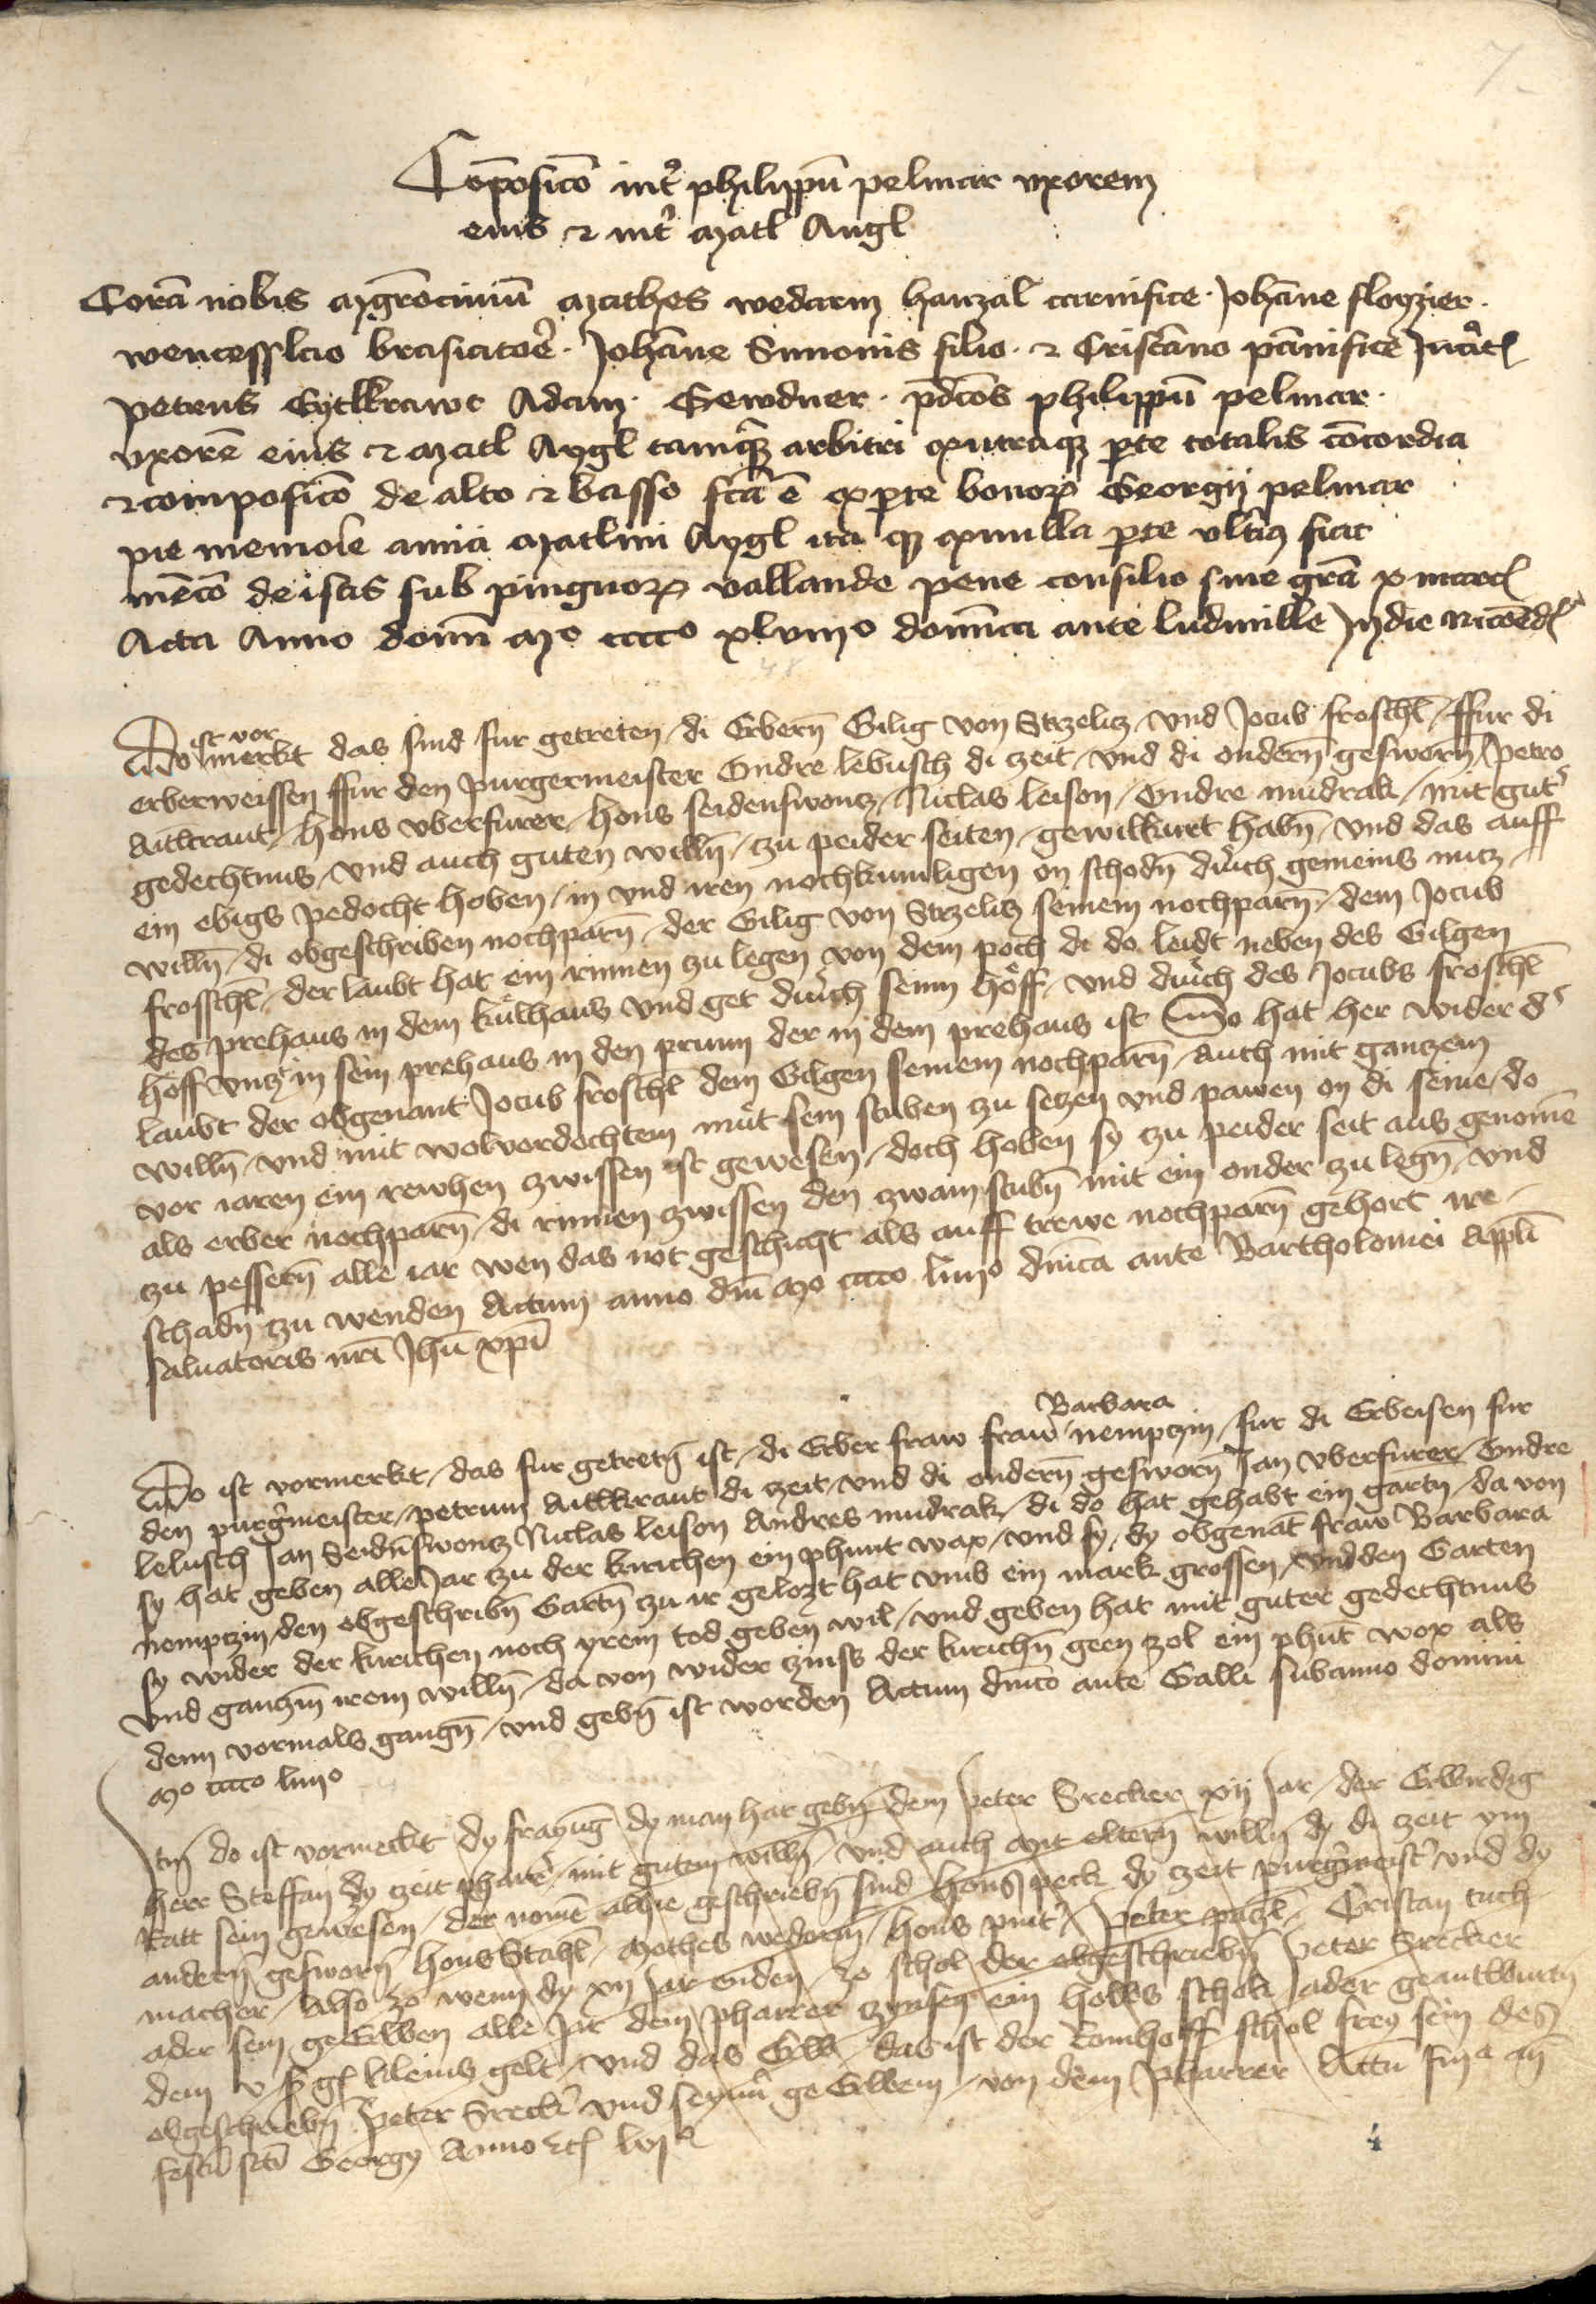 7
Cōposicō int̉ philippū pelmar vxorem
eius ⁊ int̉ matl Angl
Corā nobis mgrōciuiū mathes wedarm hanzal carnifice · Johāne floyzier ·
wencesslao brasiatoꝛē · Johāne Simonis filio · ⁊ Cristāno pānifice
petrus Eytlkrawt Adam · Gewdner · pdcōs philippū pelmar ·
vxorē eius ⁊ matl Aygl tamqȝ arbitri exutraqȝ pte totalis cōcordia
⁊ composicō de alto ⁊ basso fcā ē exparte bonoꝝ Georgij pelmar
pie memorie amici matlini Aygl ita qȝ exnulla pte vltius fiat
mēcō de istis sub pinguoꝝ vallando pene consilio sine grā x marc
Acta Anno domī mo cccco xlvııjo domīca ante ludmille
48
Do ist vor merkt das sind fur getreten / di Erbern̄ Gilig von Strzelitz / vnd Jocub froschl̄ / ffur di
erberweissen ffur den purgermeister Ondre lebusch di zeit / vnd di ondern̄ gesworn̄ / petro
Aitlkraut / hons vberfurer / hons seidenswontz / Niclas leison / Ondre mudrak / mit gut̉
gedechtnus / vnd auch guten willn̄ / zu peider seiten / gewilkurt habn̄ / vnd das auff
ein ebigs pedocht hoben / in vnd iren nochkumligen on schodn̄ durch gemeins nutz
willn̄ / di obgeschriben nochparn̄ / der Gilig von Strzelitz seinem nochparn̄ / dem Jocub
frosschl̄ / der laubt hat ein rinnen zu legen von dem poch di do leidt neben des Gilgen
des prehaus in dem kulhaus vnd get durch seinn hoff / vnd durch des Jocubs froschl̄
hoff vntz in sein prehaus in den prunn der in dem prehaus ist Do hat her wider d̉
laubt der obgenant Jocub froschl̄ dem Gilgen seinem nochparn̄ / auch mit ganczem
willn̄ / vnd mit wolvordochtem mut sein stuben zu setzen vnd pawen on di seine / do
vor iaren ein rewhen zwissen ist gewesen / doch hoben sy zu peider seit aus genomē
als erber nochparn̄ / di rinnen zwissen den zwain stubn̄ mit ein onder zu legn̄ / vnd
zu pessern̄ alle iar wen das not geschicht als auff trewe nochparn̄ gehort ire /
schadn̄ zu wenden Actum anno dn̄i mo cccco liiijo dn̄ica ante Bartholomei Appl̄i
saluatoris nr̄i Jhū xpī
Barbara
Do ist vormerkt / das fur getretn̄ ist / di Erber fraw fraw nempczin / fur di Erbeisen fur
den purg̉meister / petrum Aitlkraut di zeit / vnd di ondern̄ gesworn̄ Jan vberfurer / Ondre
lebusch Jan Seidn̄swontz Niclas leison Andres mudrak / di do hat gehabt ein gartn / da von
sy hat geben alle Jar zu der kirichen ein phunt wax / vnd sy / dy obgenāt fraw Barbara
nempczin / den obgeschribn̄ Gartn̄ zu ir gelozt hat vmb ein mark grossen / vnd den Garten
sy wider der kirichen noch yrem tod geben wil / vnd geben hat mit guter gedechtnus
vnd ganczm̄ irem willn̄ / da von wider zinss der kirichn̄ geen zol ein phūt wox als
denn vormals gangn̄ / vnd gebn̄ ist worden Actum dn̄ico ante Galli sub anno domini
mo cccco liiijo
Itm̄ do ist vormerkt dy frayūg dy man hat gebn̄ dem peter Srecker xij Jar / der Erwirdig
herr Steffan dy zeit pharr̉ / mit gutem willn̄ / vnd auch mit eltern willn̄ dy di zeit ym
Ratt sein gewesen / der nomē alhie geschriebn̄ sind Hons peck dy zeit purg̉meist̉ vnd dy
andern̄ gesworn̄ hons Stahl̄ / Mothes wedorm̄ / hons pint̉ / peter paczl̄ / Cristan tuch
macher / Also zo wenn dy xij Jar enden / zo schol der obgeschriebn̄ peter Srecker
ader sein geErben alle Jar dem pharrer zynsen ein holbs schok / ader geantwurtn
dem kleins gelt / vnd das Erb / das ist der Tomhoff schol frey sein des
obgeschriebn̄ peter Sreck̉ vnd seynn̄ geErbem / von dem pharrer Actū
festū sctī Georgy Anno
4